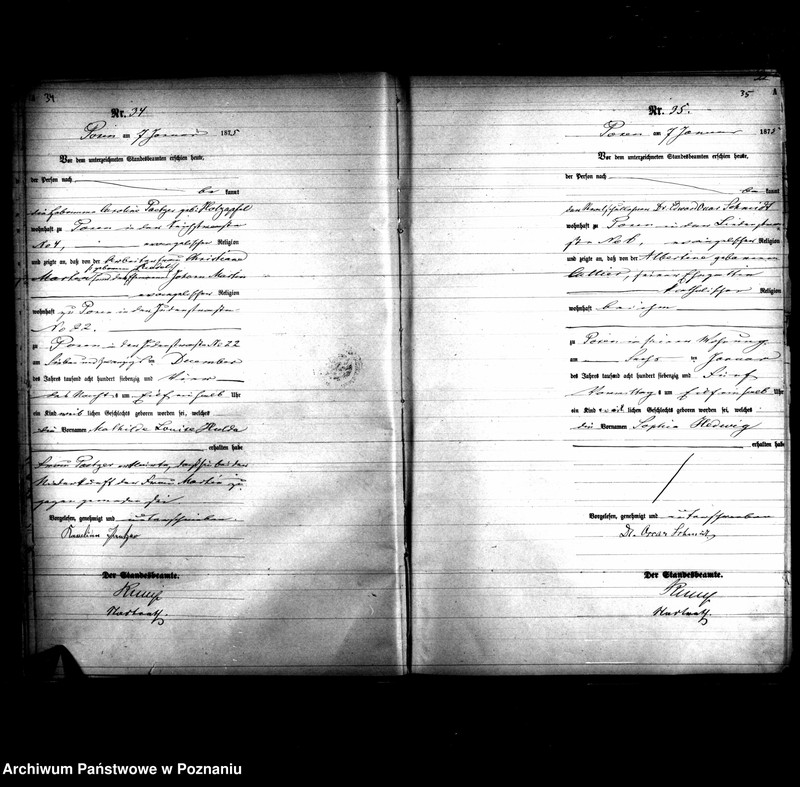 34
Nr. 34
Posen am 7 Januar 1875
Vor dem unterzeichneten Standesbeamten erschien heute,
der Person nach
be kannt
die Hebamme Caroline geb. Holzapfel
wohnhaft zu Posen in der
No 4, evangelischer Religion
und zeigte an, daß von der Christiane
Johann Martin
evangelischer Religion
wohnhaft zu Posen in der Judenstrasse
No 22.
zu Posen in der Judenstrasse No 22
am Sieben und zwanzigsten December
des Jahres tausend acht hundert siebenzig und vier
des Nachts um elf ein halb Uhr
ein Kind weib lichen Geschlechts geboren worden sei, welches
die Vornamen Mathilde Louise Hulda
erhalten habe
Niederkunft der Frau Martin zu
gegen gewesen sei
Vorgelesen, genehmigt und unterschrieben
Der Standesbeamte.
35
A
Nr. 35.
Posen am 7 Januar 1875
Vor dem unterzeichneten Standesbeamten erschien heute,
der Person nach
be kannt
Dr. Oscar Schmidt
wohnhaft zu Posen in der
No 6, evangelischer Religion
und zeigte an, daß von der Albertine geborenen
seiner Ehegattin
katholischer Religion
wohnhaft bei ihm
zu Posen in seiner Wohnung
am Sechs ten Januar
des Jahres tausend acht hundert siebenzig und fünf
Vormittags um elf ein halb Uhr
ein Kind weib lichen Geschlechts geboren worden sei, welches
die Vornamen Sophie Hedwig
erhalten habe
Vorgelesen, genehmigt und unterschrieben
Dr. Oscar Schmidt
Der Standesbeamte.
Archiwum Państwowe w Poznaniu